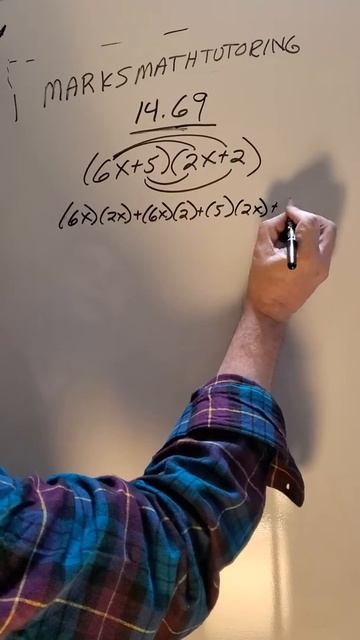 MARKSMATHTUTORING
14.69
(6x+5)(2x+2)
(6x)(2x)+(6x)(2)+(5)(2x)+